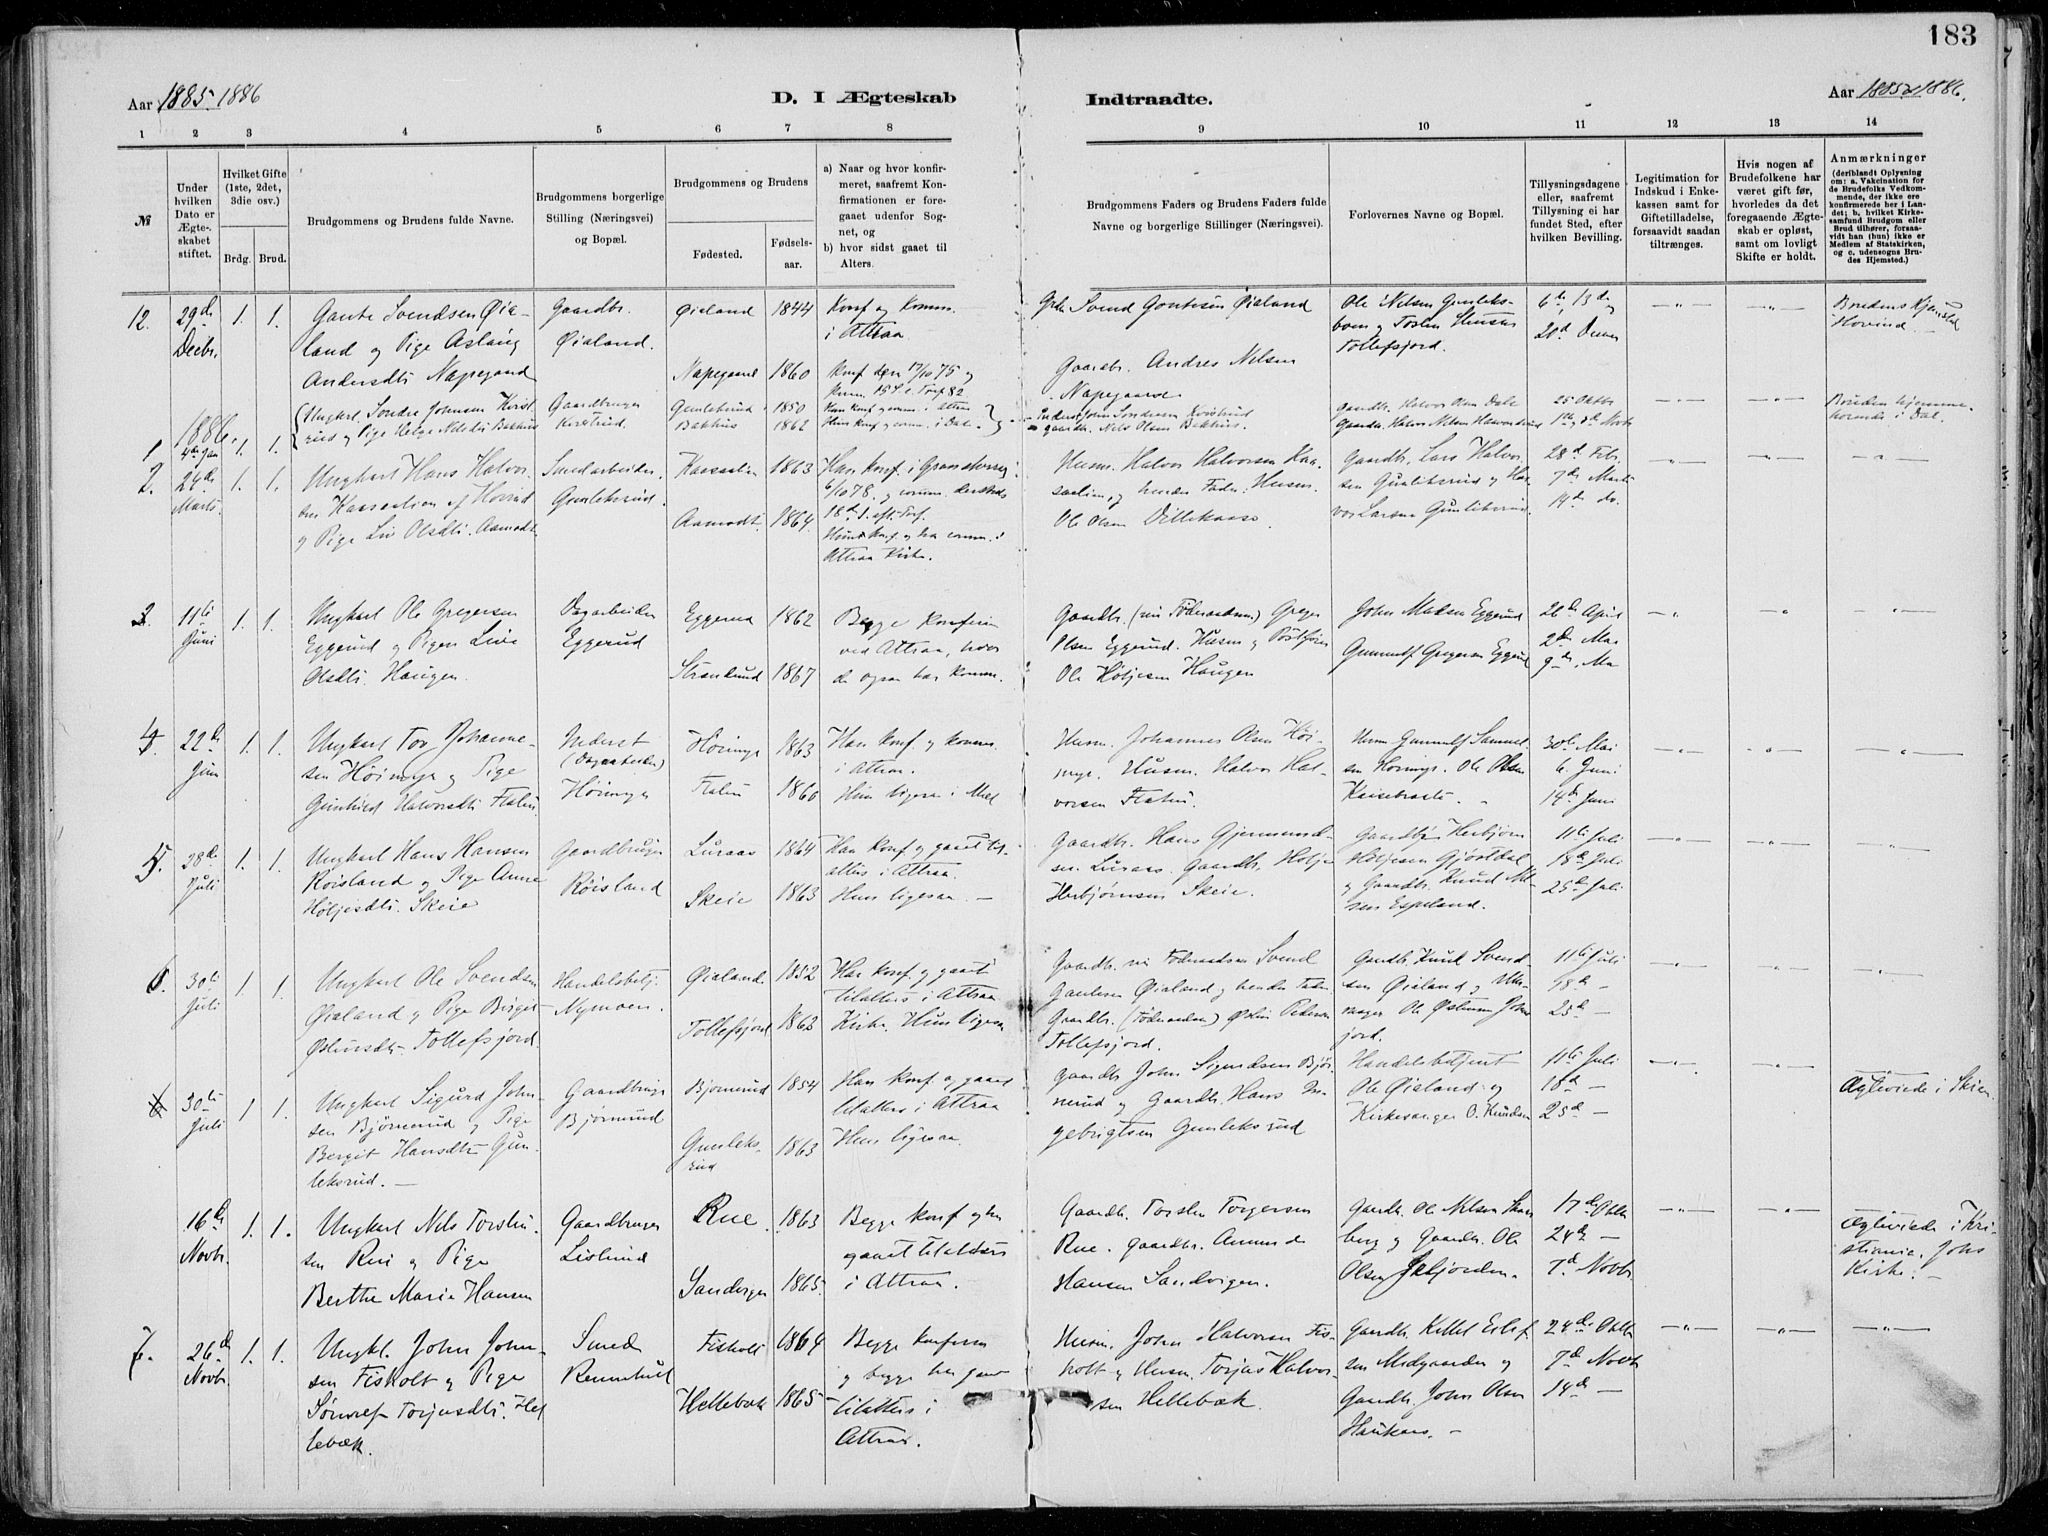 183
Aar 1885. 1886
D. I Ægteskab
Indtraadte.
Aar 1885 1886.
1 2 3 4 5 6 7 8 9 10 11 12 13 14
№
Under hvilken Dato er Ægteskabet stiftet.
Hvilket Gifte (1ste, 2det, 3die osv.)
Brdg. Brud.
Brudgommens og Brudens fulde Navne.
Brudgommens borgerlige Stilling (Næringsvei) og Bopæl.
Brudgommens og Brudens
Fødested.
Fødselsaar.
a) Naar og hvor konfirmeret, saafremt Konfirmationen er foregaaet udenfor Sognet, og
b) hvor sidst gaaet til Alters.
Brudgommens Faders og Brudens Faders fulde Navne og borgerlige Stillinger (Næringsvei).
Forlovernes Navne og Bopæl.
Tillysningsdagene eller, saafremt Tillysning ei har fundet Sted, efter hvilken Bevilling.
Legitimation for Indskud i Enkekassen samt for Giftetilladelse, forsaavidt saadan tiltrænges.
Hvis nogen af Brudefolkene har været gift før, hvorledes da det foregaaende Ægteskab er opløst, samt om lovligt Skifte er holdt.
Anmærkninger (deriblandt Oplysning om: a. Vakcination for de Brudefolks Vedkommende, der ikke ere konfirmerede her i Landet; b. hvilket Kirkesamfund Brudgom eller Brud tilhører, forsaavidt han (hun) ikke er Medlem af Statskirken, og c. udensogns Brudes Hjemsted.)
12. 29de Decbr. 1. 1.
Gaute Svendsen Øialand og Pige Aslaug Andersdtr Napegaard
Gaardbr. Øialand.
Øialand 1844
Napegaard 1860
Konf og komm. i Attraa
Konf den 17/10 75 og
Svend Gautesen Øialand
Gaardbr. Andres Nilsen Napegaard
Ole Nilsen Gunleks- og Torsten
Tollefsjord.
6te, 13de og 20d
Brudens Hjemsted Hovind
1886.
1. 4de Jan 1. 1.
Ungkarl Sondre Johnsen Korist- rud og Pige Helge Nilsdtr Bakhus
Gaardbruger
Gunleksrud 1850
Bakhus 1862
Han konf og comm. i Attraa
Hun konf og comm. i Dal.
John Sondresen
gaardbr. Nils Olsen Bakhus.
Gaardbr. Halvor Olsen Dale
Gaardbr. Halvor Nilsen
25 Oktbr
1ste og 8de Novb
Bruden hjemme- hørende i Dal.
2. 24de Marts 1. 1.
Ungkarl Hans Halvor- sen Kaasa
og Pige Liv Olsdtr. Aamodt
Smedarbeider Gunleksrud.
1863
Aamodt. 1864.
Han konf. i Gransherred 6/10 78. og comm.
Hun konf og har comm. i Attraa Kirke.
Husm. Halvor Halvorsen Kaa-
og hendes Fader: Husm. Ole Olsen
Gaardbr. Lars Halvor- sen Gunleksrud og Hal- vor Larsen Gunleksrud.
28d Feb. 7de Marts 14de do.
3. 11te Juni 1. 1.
Ungkarl Ole Gregersen Eggerud og Pigen Live Olsdtr. Haugen.
Dagarbeider Eggerud
Eggerud 1862
1867
Begge konfirm ved Attraa, hvor de ogsaa har komm.
Gaardbr. (nu Føderaadsm.) Greger Olsen Eggerud. Husm og Postfører Ole Høljesen Haugen
John Madsen Eggerud
Gunnulf Gregersen Eggerud
26de April 2de Mai 9de Mai
4. 22de Juni 1. 1.
Ungkarl Tov Johanne- sen Høimyr og Pige Gunhild Halvorsdtr Flatin
Inderst (Dagarbeider) Høimyr
Høimyr 1863
Flatin 1860
Han konf. og komm. i Attraa.
Hun ligesaa i Mæl
Husm. Johannes Olsen Høi- myr. Husm. Halvor Hal- vorsen Flatin.
Husm Gunnulf Samuel- sen Høimyr. Ole Olsen
30te Mai 6. Juni 14de Juni
5. 28de Juli 1. 1.
Ungkarl Hans Hansen Røisland og Pige Anne Høljesdtr. Skeie
Gaardbruger Røisland
Luraas 1864
Skeie 1863
Han konf og gaaet til- alters i Attraa.
Hun ligesaa. —
Gaardbr. Hans Gjermund- sen Luraas. Gaardbr. Holje Herbjørnsen Skeie.
Gaardbr. Herbjørn Høljesen Gjøstdal og Gaardbr. Knud Nil- sen Espeland.
11te Juli 18de Juli 25de Juli
6. 30te Juli 1. 1.
Ungkarl Ole Svendsen Øialand og Pige Birgit Østensdtr. Tollefsjord.
Handelsbetj. Nymoen.
Øialand. 1852
Tollefsjord 1862
Han konf og gaaet tilalters i Attraa Kirke. Hun ligesaa
Gaardbr. nu Føderaadsm Svend Gautesen Øialand og hendes Fader Gaardbr. (Føderaadsm) Østen Pedersen Tollefsjord.
Gaardbr. Knud Svend- sen Øialand og Uhr- mager Ole Østensen Tollefs- jord.
11te Juli 18de — 25de —
30te Juli 1 1.
Ungkarl Sigurd John- sen Bjørnerud og Pige Bergit Hansdtr Gun- leksrud. —
Gaardbruger Bjørnerud
Bjørnerud 1854
Gunleks- rud 1863
Han konf. og gaaet tilalters i Attraa
Hun ligesaa.
Gaardbr John Sigurdsen Bjør- nerud og Gaardbr. Hans In- gebrigtsen Gunleksrud
Handelsbetjent Ole Øialand og Kirkesanger O. Knudsen
11te Juli 18d — 25d —
Ægteviede i Skien
16de Novbr. 1. 1.
Ungkarl Nils Torstein- sen Rui og Pige Berthe Marie Hansen
Gaardbruger Lislerud
Rue. 1863
Sandvigen 1865.
Begge konf og har gaaet tilalters i Attraa.
Gaardbr. Torsten Torgersen Rue. Gaardbr. Amund Hansen Sandvigen.
Gaardbr. Ole Nilsen
berg og Gaardbr. Ole Olsen
17de Oktbr 24de — 7d Novbr
Ægteviede i Kri- stiania. Johs Kirke. —
7. 26de Novbr. 1. 1.
Ungk. John John- sen Fisholt og Pige Torjusdtr. Hel- lebæk.
Smed
Fisholt 1864
Hellebæk 1865
Begge konfirm og begge har gaaet tilalters i Attraa.
Husm. John Halvorsen Fis- holt og Husm. Torjus Halvor- sen Hellebæk.
Gaardbr. Kittel Eilif- sen Midgaarden og Gaardbr. John Olsen Haukaas. —
24de Oktbr 7d Novbr 14de —